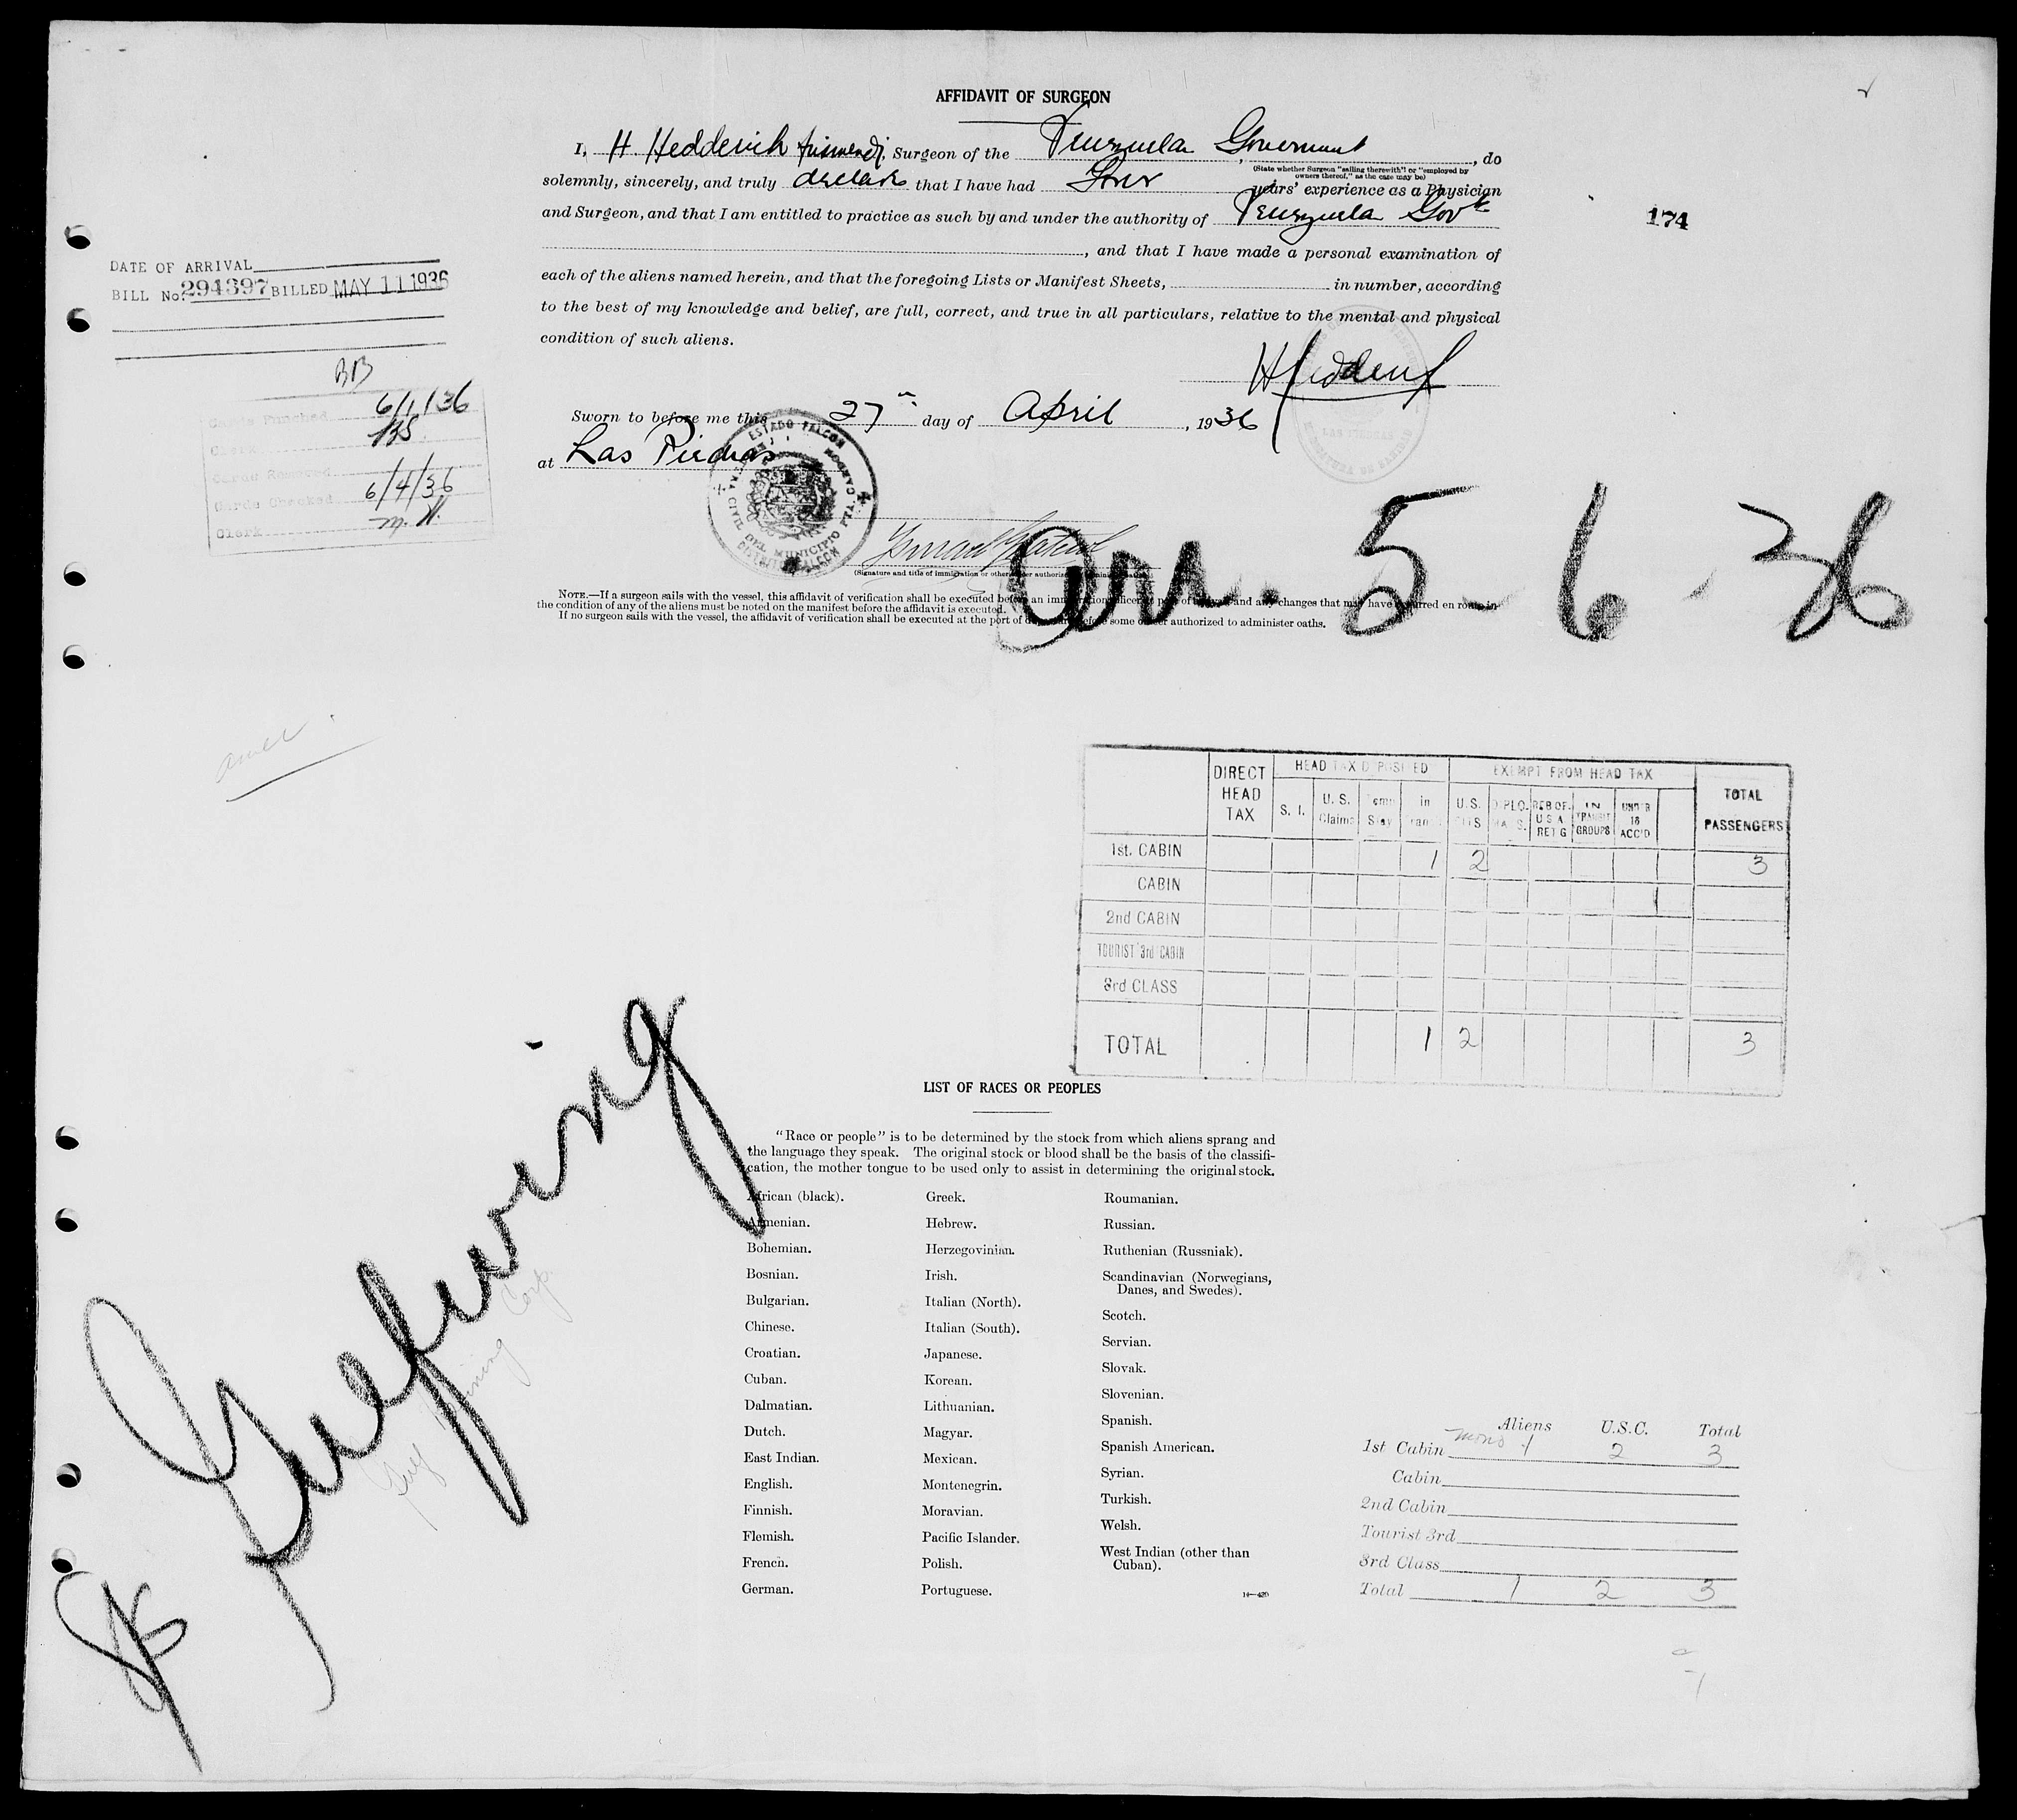 AFFIDAVIT OF SURGEON
I, H. Hedderich, Surgeon of the Venezuela Government, do
(State whether Surgeon "sailing therewith" or "employed by
owners thereof," as the case may be)
solemnly, sincerely, and truly declare that I have had four years' experience as a Physician
and Surgeon, and that I am entitled to practice as such by and under the authority of Venezuela Govt
, and that I have made a personal examination of
each of the aliens named herein, and that the foregoing Lists or Manifest Sheets, in number, according
to the best of my knowledge and belief, are full, correct, and true in all particulars, relative to the mental and physical
condition of such aliens.
174
DATE OF ARRIVAL
BILL No. 294397 BILLED MAY 11 1936
BB
Cards Punched 6/1/36
Clerk
Cards Removed
Cards Checked 6/4/36
Clerk M. H.
Sworn to before me this 27th day of April, 1936
at Las Piedras
ESTADO FALCON
DEL MUNICIPIO
LAS PIEDRAS
(Signature and title of immigration or other officer authorized to administer oaths)
Arr. 5-6-36
NOTE.—If a surgeon sails with the vessel, this affidavit of verification shall be executed before an immigration officer at port of arrival and any changes that may have occurred en route in
the condition of any of the aliens must be noted on the manifest before the affidavit is executed.
If no surgeon sails with the vessel, the affidavit of verification shall be executed at the port of departure before some officer authorized to administer oaths.
DIRECT HEAD TAX
HEAD TAX DEPOSITED
EXEMPT FROM HEAD TAX
TOTAL PASSENGERS
S. I. U. S. Claims Temp Stay in Trans U. S. CITS DIPLO-MATS. RES OF U S A RET G IN TRANSIT GROUPS UNDER 16 ACC'D
1st. CABIN 1 2 3
CABIN
2nd CABIN
TOURIST 3rd CABIN
3rd CLASS
TOTAL 1 2 3
Gulfwing
LIST OF RACES OR PEOPLES
"Race or people" is to be determined by the stock from which aliens sprang and
the language they speak. The original stock or blood shall be the basis of the classifi-
cation, the mother tongue to be used only to assist in determining the original stock.
African (black).
Armenian.
Bohemian.
Bosnian.
Bulgarian.
Chinese.
Croatian.
Cuban.
Dalmatian.
Dutch.
East Indian.
English.
Finnish.
Flemish.
French.
German.
Greek.
Hebrew.
Herzegovinian.
Irish.
Italian (North).
Italian (South).
Japanese.
Korean.
Lithuanian.
Magyar.
Mexican.
Montenegrin.
Moravian.
Pacific Islander.
Polish.
Portuguese.
Roumanian.
Russian.
Ruthenian (Russniak).
Scandinavian (Norwegians,
Danes, and Swedes).
Scotch.
Servian.
Slovak.
Slovenian.
Spanish.
Spanish American.
Syrian.
Turkish.
Welsh.
West Indian (other than
Cuban).
14—429
Aliens U.S.C. Total
1st Cabin 1 2 3
Cabin
2nd Cabin
Tourist 3rd
3rd Class
Total 1 2 3